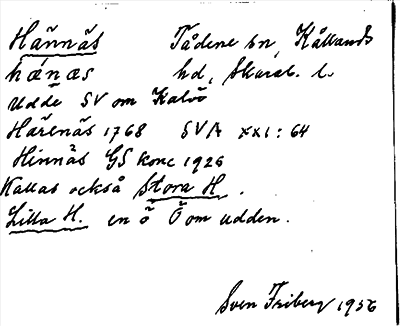 Hännäs Tådene sn, Kållands
hǽnæs hd, Skarab. l.
Udde SV om Kalvö
Härenäs 1768 SVA XXI: 64
Hinnäs GS konc 1926
Kallas också Stora H.
Lilla H. en ö Ö om udden.
Sven Friberg 1956